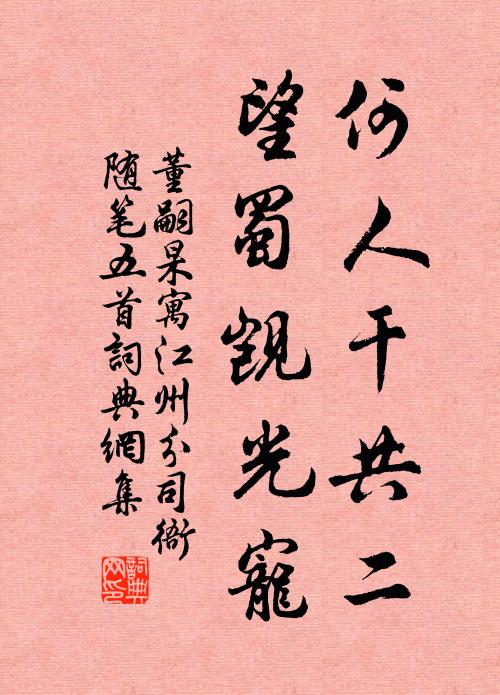 何人干共二
望蜀觊光寵
董嗣杲寓江州分司衙
随笔五首詞典網集
詞典网印